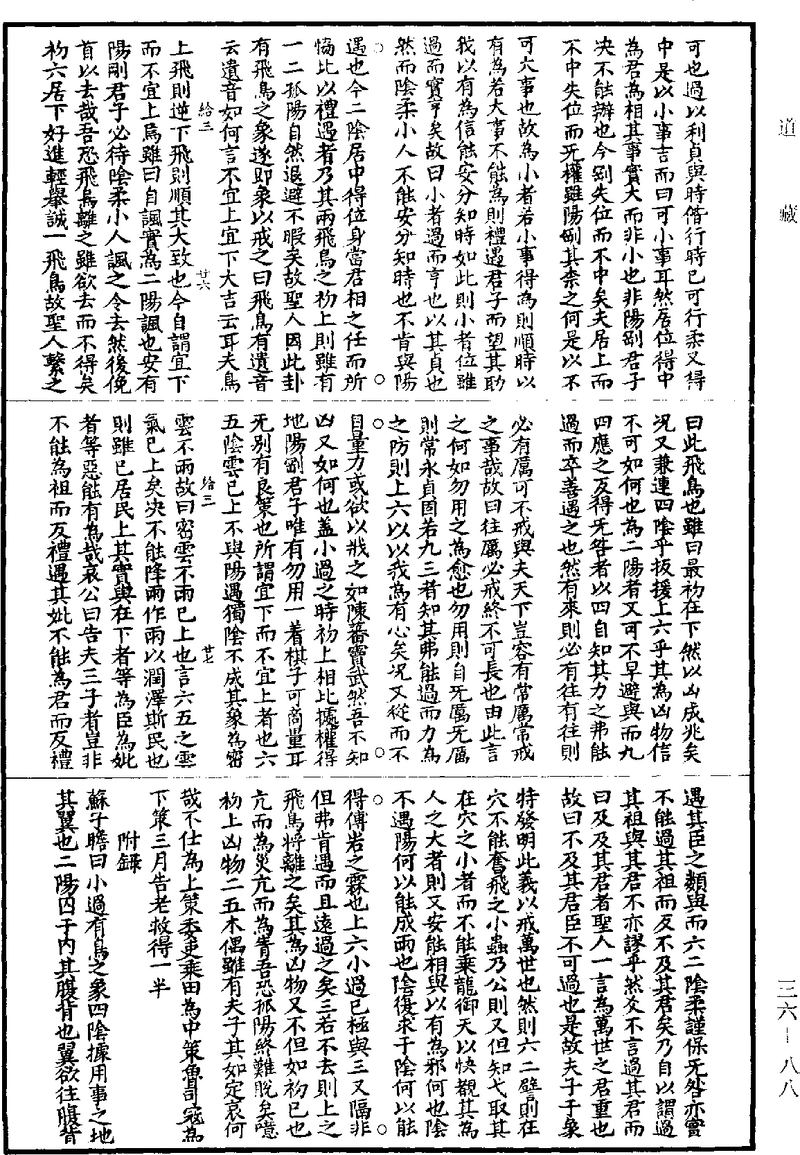 道藏
三六—八八
可也過以利貞與時偕行時已可行柔又得
中是以小事言而曰可小事耳然居位得中
為君為相其事實大而非小也非陽剛君子
決不能辦也今剛失位而不中矣夫居上而
不中失位而无權雖陽剛其柰之何是以不
可大事也故為小者若小事得為則順時以
有為若大事不能為則禮遇君子而望其助
我以有為信能安分知時如此則小者位雖
過而實亨矣故曰小者過而亨也以其貞也
然而陰柔小人不能安分知時也不肯與陽
遇也今二陰居中得位身當君相之任而所
恊比以禮遇者乃其兩飛鳥之初上則雖有
一二孤陽自然退避不暇矣故聖人因此卦
有飛鳥之象遂即象以戒之曰飛鳥有遺音
云遺音如何言不宜上宜下大吉云耳夫鳥
給三
廿六
上飛則逆下飛則順其大致也今自謂宜下
而不宜上焉雖曰自諷實為二陽諷也安有
陽剛君子必待陰柔小人諷之令去然後俛
首以去哉吾恐飛鳥離之雖欲去而不得矣
初六居下好進輕舉誠一飛鳥故聖人繫之
曰此飛鳥也雖曰最初在下然以凶成兆矣
況又兼連四陰乎扳援上六乎其為凶物信
不可如何也為二陽者又可不早避與而九
四應之反得无咎者以四自知其力之弗能
過而卒善遇之也然有來則必有往有往則
必有厲可不戒與夫天下豈容有常厲常戒
之事哉故曰往厲必戒終不可長也由此言
之何如勿用之為愈也勿用則自无厲无厲
則常永貞固若九三者知其弗能過而力為
之防則上六以以我為有心矣況又從而不
自量力或欲以戕之如陳蕃竇武然吾不知
凶又如何也蓋小過之時初上相比據權得
地陽剛君子唯有勿用一着棋子可商量耳
无別有良策也所謂宜下而不宜上者也六
五陰雲已上不與陽遇獨陰不成其象為密
給三
廿七
雲不雨故曰密雲不雨已上也言六五之雲
氣已上矣決不能降雨作雨以潤澤斯民也
則雖已居民上其實與在下者等為臣為妣
者等惡能有為哉哀公曰告夫三子者豈非
不能為祖而反禮遇其妣不能為君而反禮
遇其臣之類與而六二陰柔謹保无咎亦實
不能過其祖而反不及其君矣乃自以謂過
其祖與其君不亦謬乎然爻不言過其君而
曰及及其君者聖人一言為萬世之君重也
故曰不及其君臣不可過也是故夫子于象
特發明此義以戒萬世也然則六二譬則在
穴不能奮飛之小蟲乃公則又但知弋取其
在穴之小者而不能乘龍御天以快覩其為
人之大者則又安能相與以有為邪何也陰
不遇陽何以能成雨也陰復求于陰何以能
得傅岩之霖也上六小過已極與三又隔非
但弗肯遇而且遠過之矣三若不去則上之
飛鳥將離之矣其為凶物又不但如初已也
亢而為災亢而為眚吾恐孤陽終難脫矣噫
初上凶物二五木偶雖有夫子其如定哀何
哉不仕為上策委吏乘田為中策魯司寇為
下策三月告老救得一半
附錄
蘇子瞻曰小過有鳥之象四陰據用事之地
其翼也二陽囚于內其腹背也翼欲往腹背